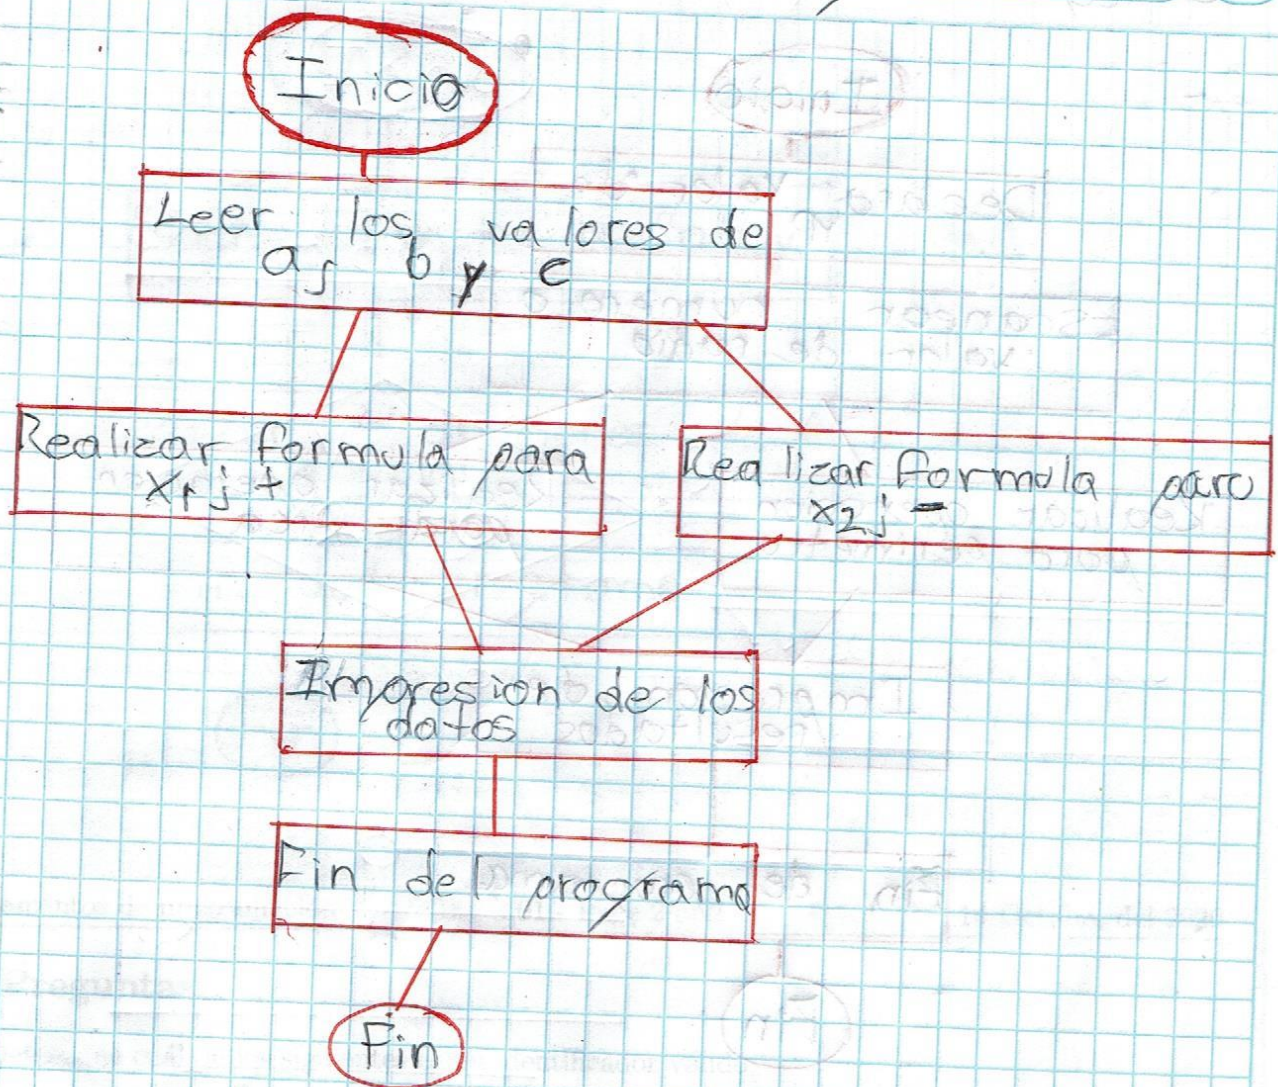 Inicio
Leer los valores de
a, b y c
Realizar formula para
x1; +
Realizar formula para
x2; -
Impresion de los
datos
Fin del programa
Fin